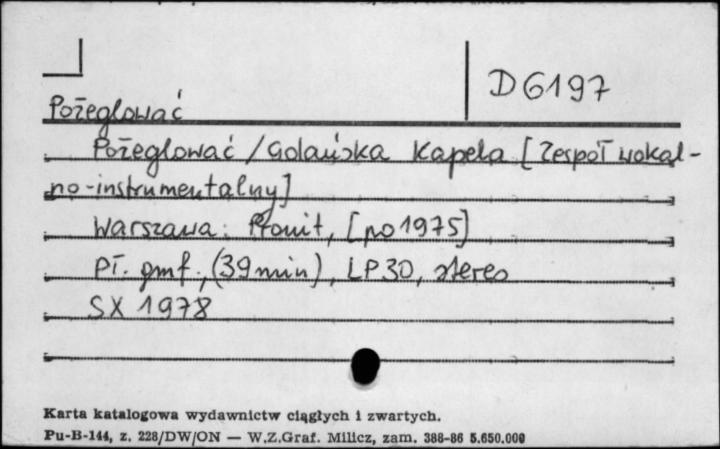 D 6197
Pożeglować
Pożeglować / Golańska Kapela [Zespół wokal-
no-instrumentalny]
Warszawa: Pronit, [po 1975]
Pł. gmf., (39 min), LP 30, stereo
SX 1978
Karta katalogowa wydawnictw ciągłych i zwartych.
Pu-B-144, z. 228/DW/ON — W.Z.Graf. Milicz, zam. 388-86 5.650.000